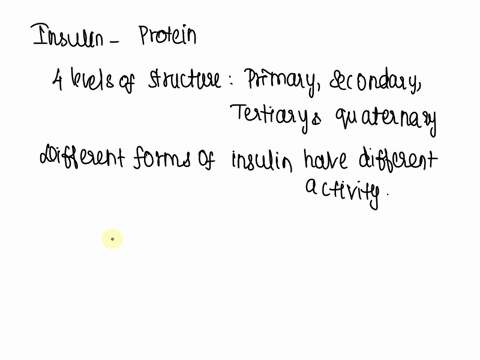 Insulin - Protein
4 levels of structure : Primary, Secondary,
Tertiary & quaternary
Different forms of insulin have different
activity.